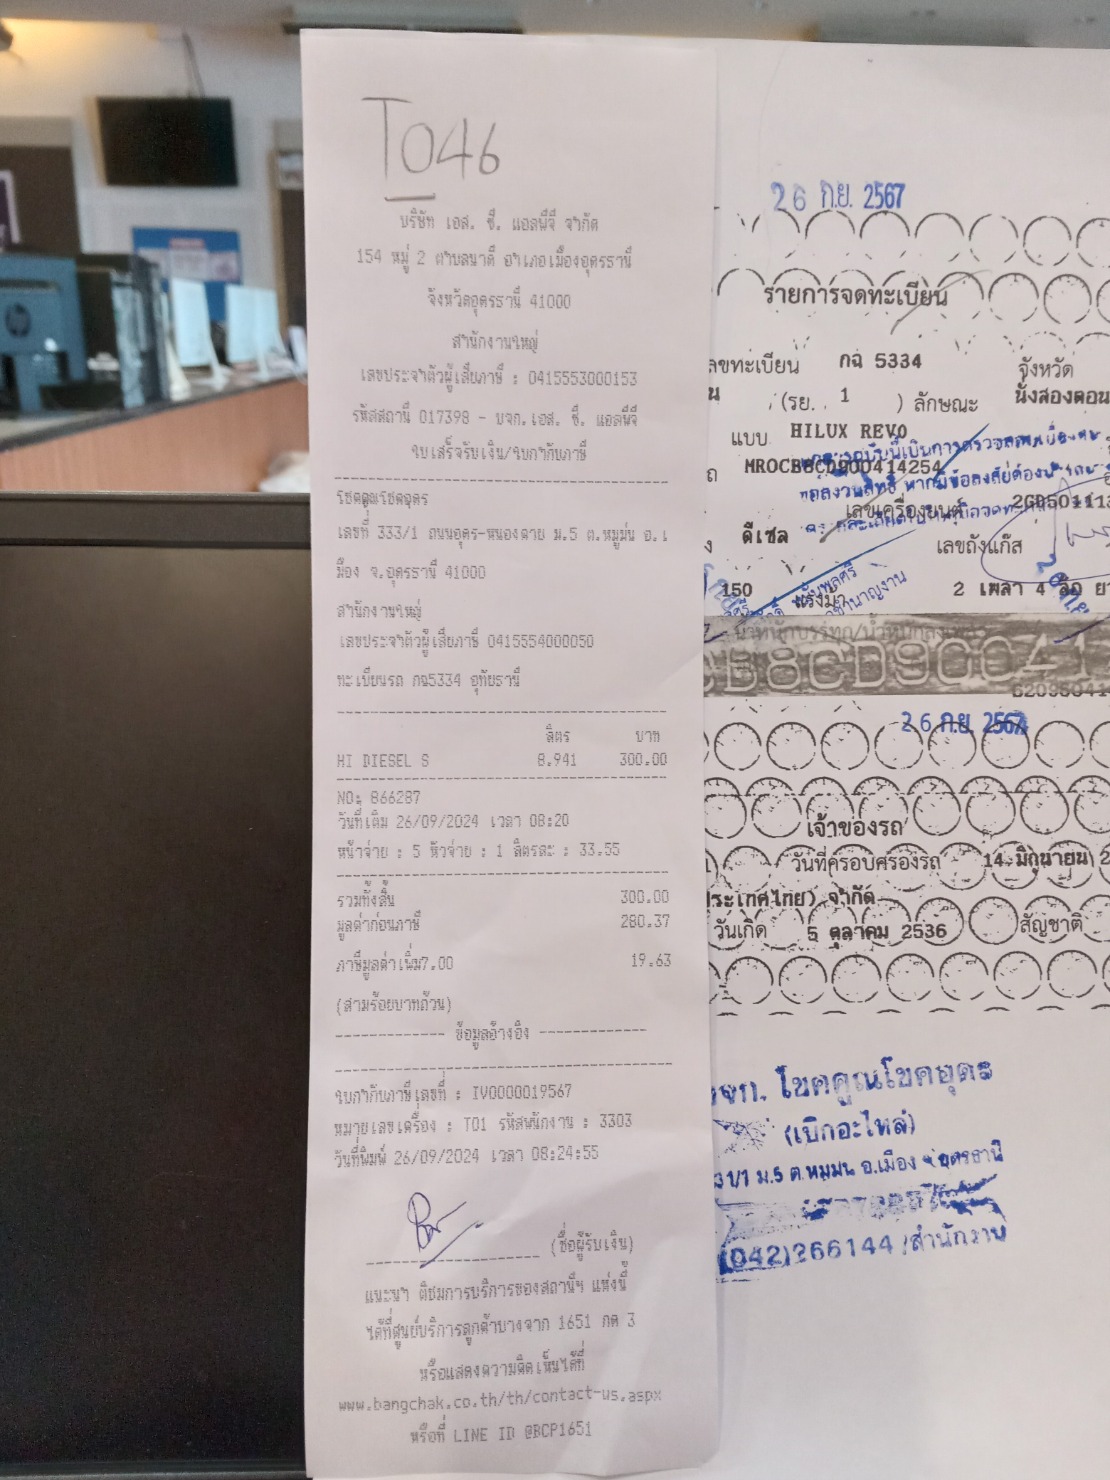 T046
บริษัท เอส. ซี. แอลพีจี จำกัด
154 หมู่ 2 ตำบลนาดี อำเภอเมืองอุดรธานี
จังหวัดอุดรธานี 41000
สำนักงานใหญ่
เลขประจำตัวผู้เสียภาษี : 0415553000153
รหัสสถานี 017398 - บจก.เอส. ซี. แอลพีจี
ใบเสร็จรับเงิน/ใบกำกับภาษี
โชคคูณโชคอุดร
เลขที่ 333/1 ถนนอุดร-หนองคาย ม.5 ต.หมูม่น อ.เ
มือง จ.อุดรธานี 41000
สำนักงานใหญ่
เลขประจำตัวผู้เสียภาษี 0415554000050
ทะเบียนรถ กฉ5334 อุทัยธานี
ลิตร บาท
HI DIESEL S 8.941 300.00
NO: 866287
วันที่เติม 26/09/2024 เวลา 08:20
หน้าจ่าย : 5 หัวจ่าย : 1 ลิตรละ : 33.55
รวมทั้งสิ้น 300.00
มูลค่าก่อนภาษี 280.37
ภาษีมูลค่าเพิ่ม7.00 19.63
(สามร้อยบาทถ้วน)
------------ ข้อมูลอ้างอิง ------------
ใบกำกับภาษีเลขที่ : IV0000019567
หมายเลขเครื่อง : T01 รหัสพนักงาน : 3303
วันที่พิมพ์ 26/09/2024 เวลา 08:24:55
(ชื่อผู้รับเงิน)
แนะนำ ติชมการบริการของสถานีฯ แห่งนี้
ได้ที่ศูนย์บริการลูกค้าบางจาก 1651 กด 3
หรือแสดงความคิดเห็นได้ที่
www.bangchak.co.th/th/contact-us.aspx
หรือที่ LINE ID @BCP1651
26 ก.ย. 2567
รายการจดทะเบียน
ลขทะเบียน กฉ 5334 จังหวัด
(รย. 1 ) ลักษณะ นั่งสองตอน
แบบ HILUX REVO
MR0CB8CD900414254
เลขเครื่องยนต์
ดีเซล เลขถังแก๊ส
150 แรงม้า 2 เพลา 4 ล้อ ย
26 ก.ย. 2567
เจ้าของรถ
วันที่ครอบครองรถ 14 มิถุนายน 2
ประเทศไทย) จำกัด
วันเกิด 5 ตุลาคม 2536 สัญชาติ
บจก. โชคคูณโชคอุดร
(เบิกอะไหล่)
ม.5 ต.หมูม่น อ.เมือง จ.อุดรธานี
(042)266144/สำนักงาน